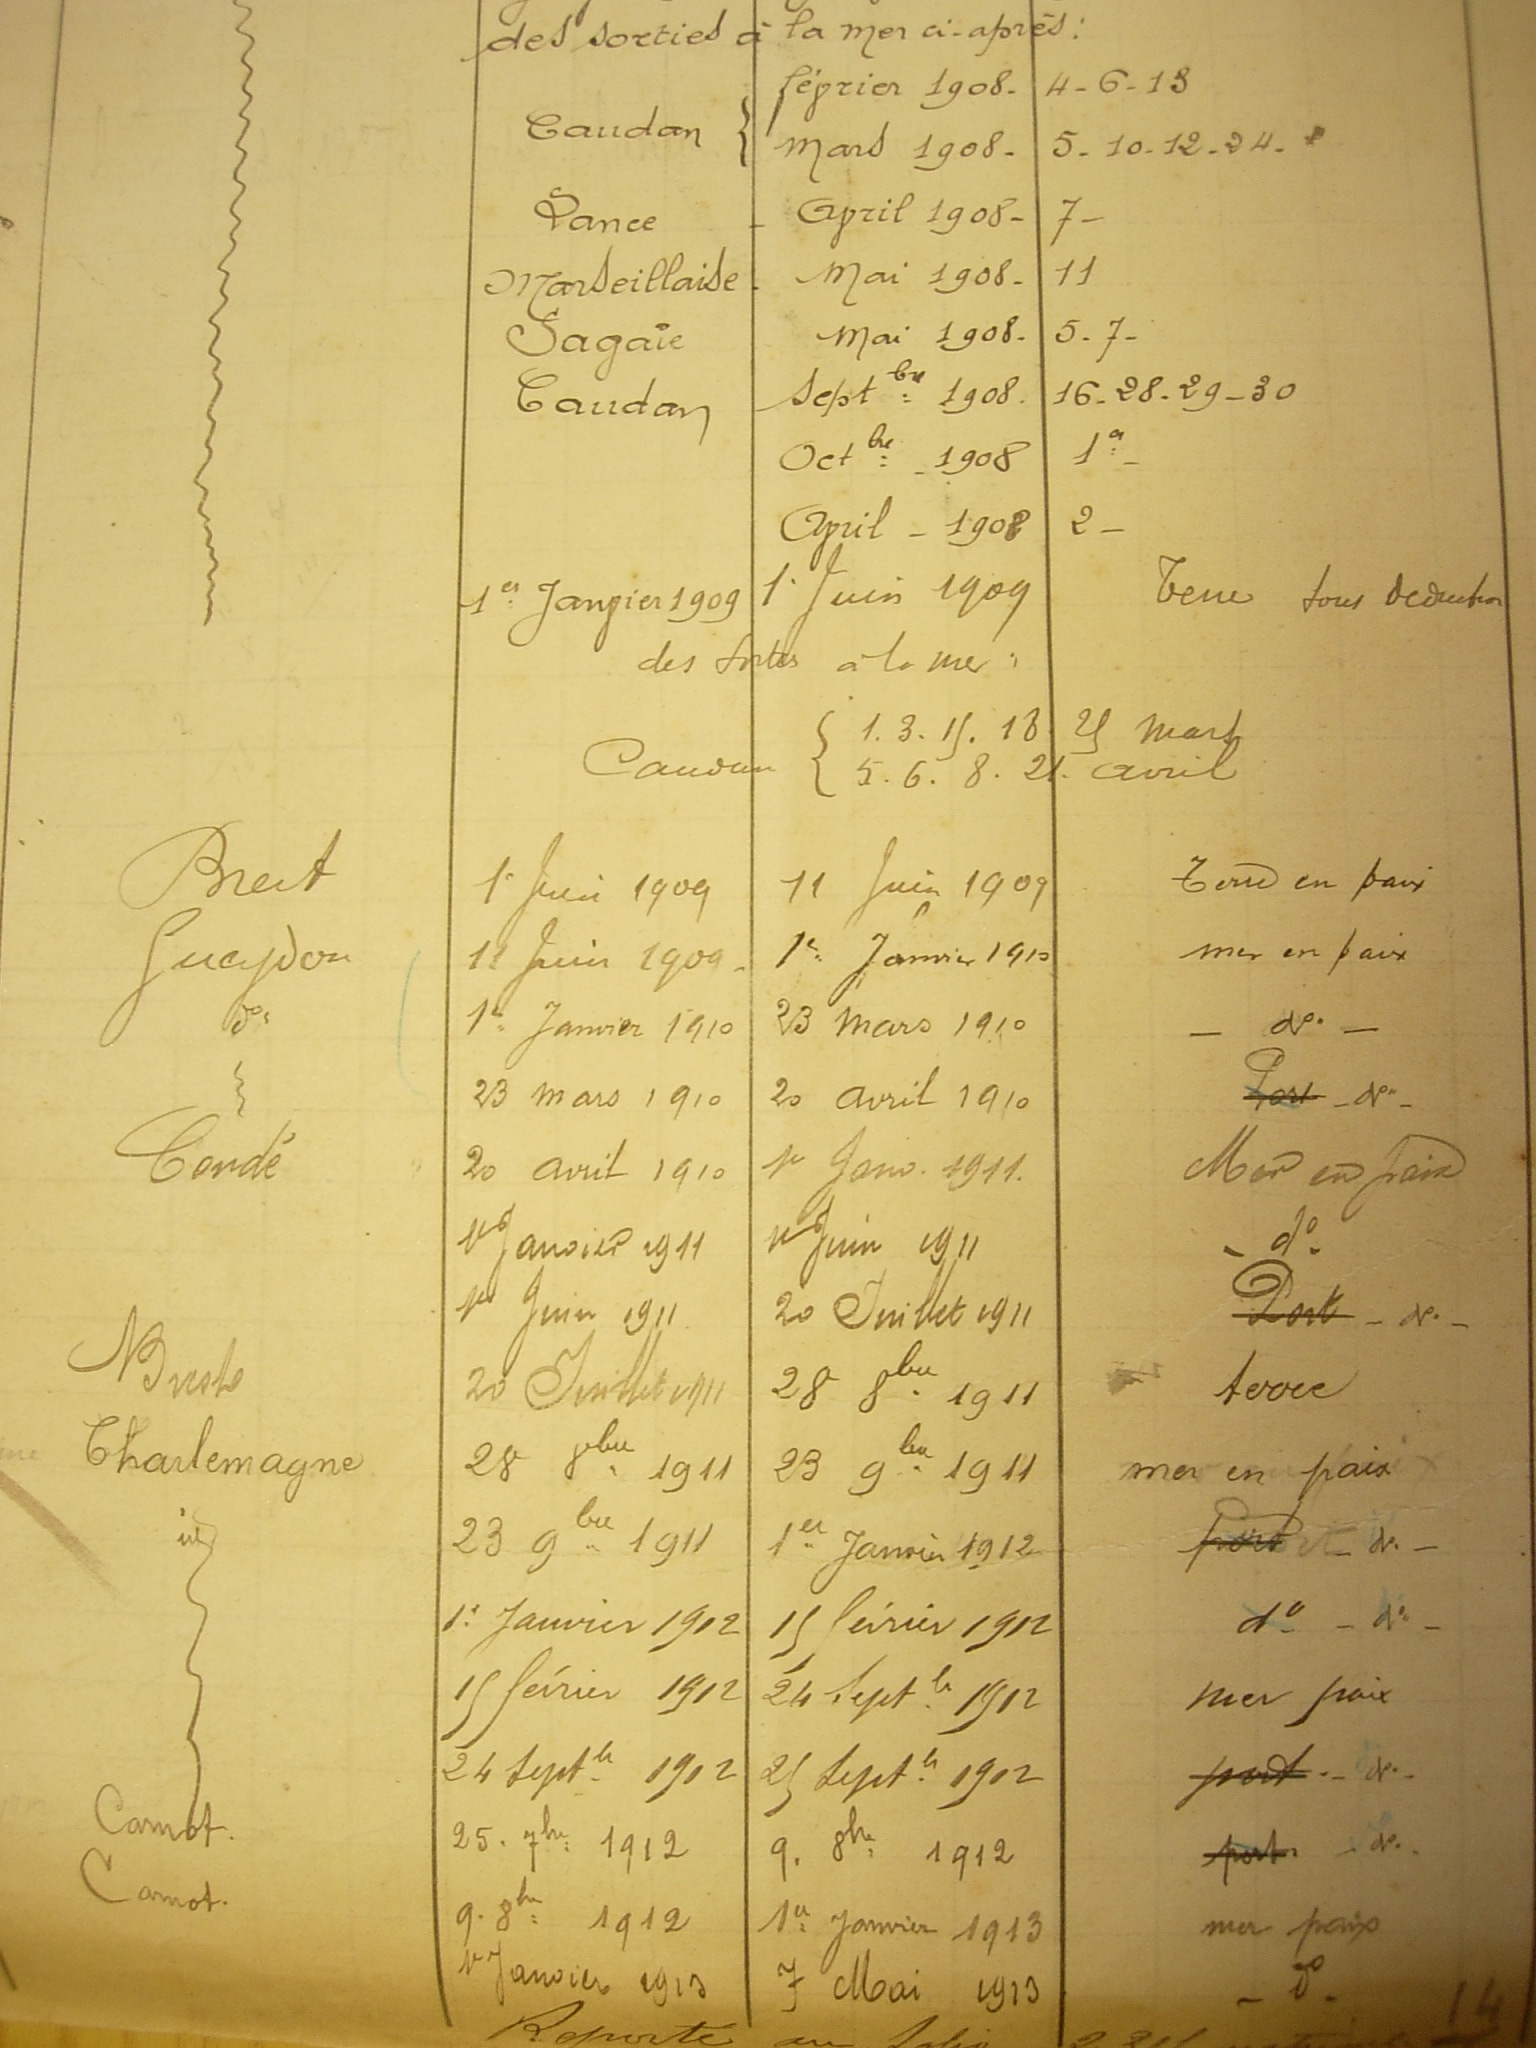 des sorties à la mer ci-après:
février 1908 - 4 - 6 - 13
Caudan { mars 1908 - 5 - 10 - 12 - 24 -
Lance - April 1908 - 7 -
Marseillaise - Mai 1908 - 11
Sagaïe Mai 1908 - 5 - 7 -
Caudan Sept bre 1908. 16 - 28 - 29 - 30
Oct bre - 1908 1er -
April - 1908 2 -
1er Janvier 1909 1r Juin 1909 Terre sous déduction
des sorties à la mer :
Caudan { 1. 3. 15. 18 25 mars
5. 6. 8. 21. avril
Brest 1r Juin 1909 11 Juin 1909 Terre en paix
Gueydon 11 Juin 1909 - 1er Janvier 1910 mer en paix
do 1er Janvier 1910 23 mars 1910 - do -
23 mars 1910 20 avril 1910 Port - do -
Condé 20 avril 1910 1er Janv. 1911. Mer en paix
1er Janvier 1911 1er Juin 1911 - do -
1er Juin 1911 20 Juillet 1911 Port - do -
Brest 20 Juillet 1911 28 8bre 1911 terre
Charlemagne 28 8bre 1911 23 9bre 1911 mer en paix
id 23 9bre 1911 1er Janvier 1912 port - do -
1er Janvier 1912 15 février 1912 do - do -
15 février 1912 24 Sept bre 1912 mer paix
24 Sept bre 1912 25 Sept bre 1912 port - do -
Carnot. 25. 7bre 1912 9. 8bre 1912 port - do -
Carnot. 9. 8bre 1912 1er Janvier 1913 mer paix
1er Janvier 1913 7 Mai 1913 - do -
Reporté au folio